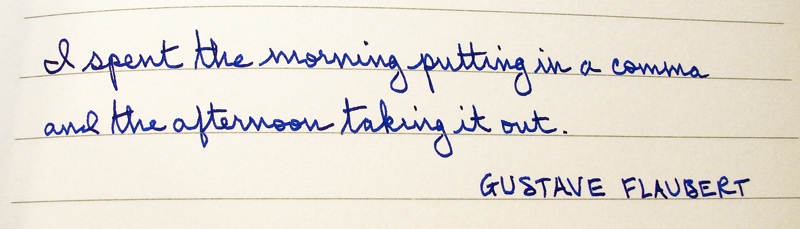 I spent the morning putting in a comma
and the afternoon taking it out.
GUSTAVE FLAUBERT